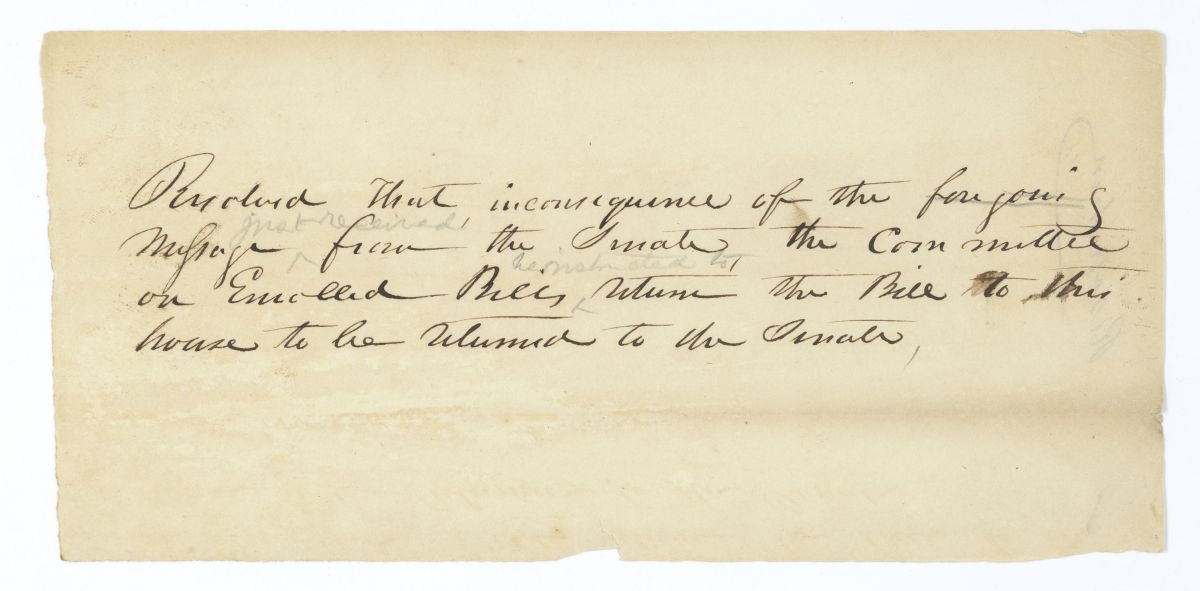 Resolved That, inconsequence of the foregoing
just received,
Message from the Senate, the Committee
be instructed to,
on Enrolled Bills return the Bill to this
house to be returned to the Senate,